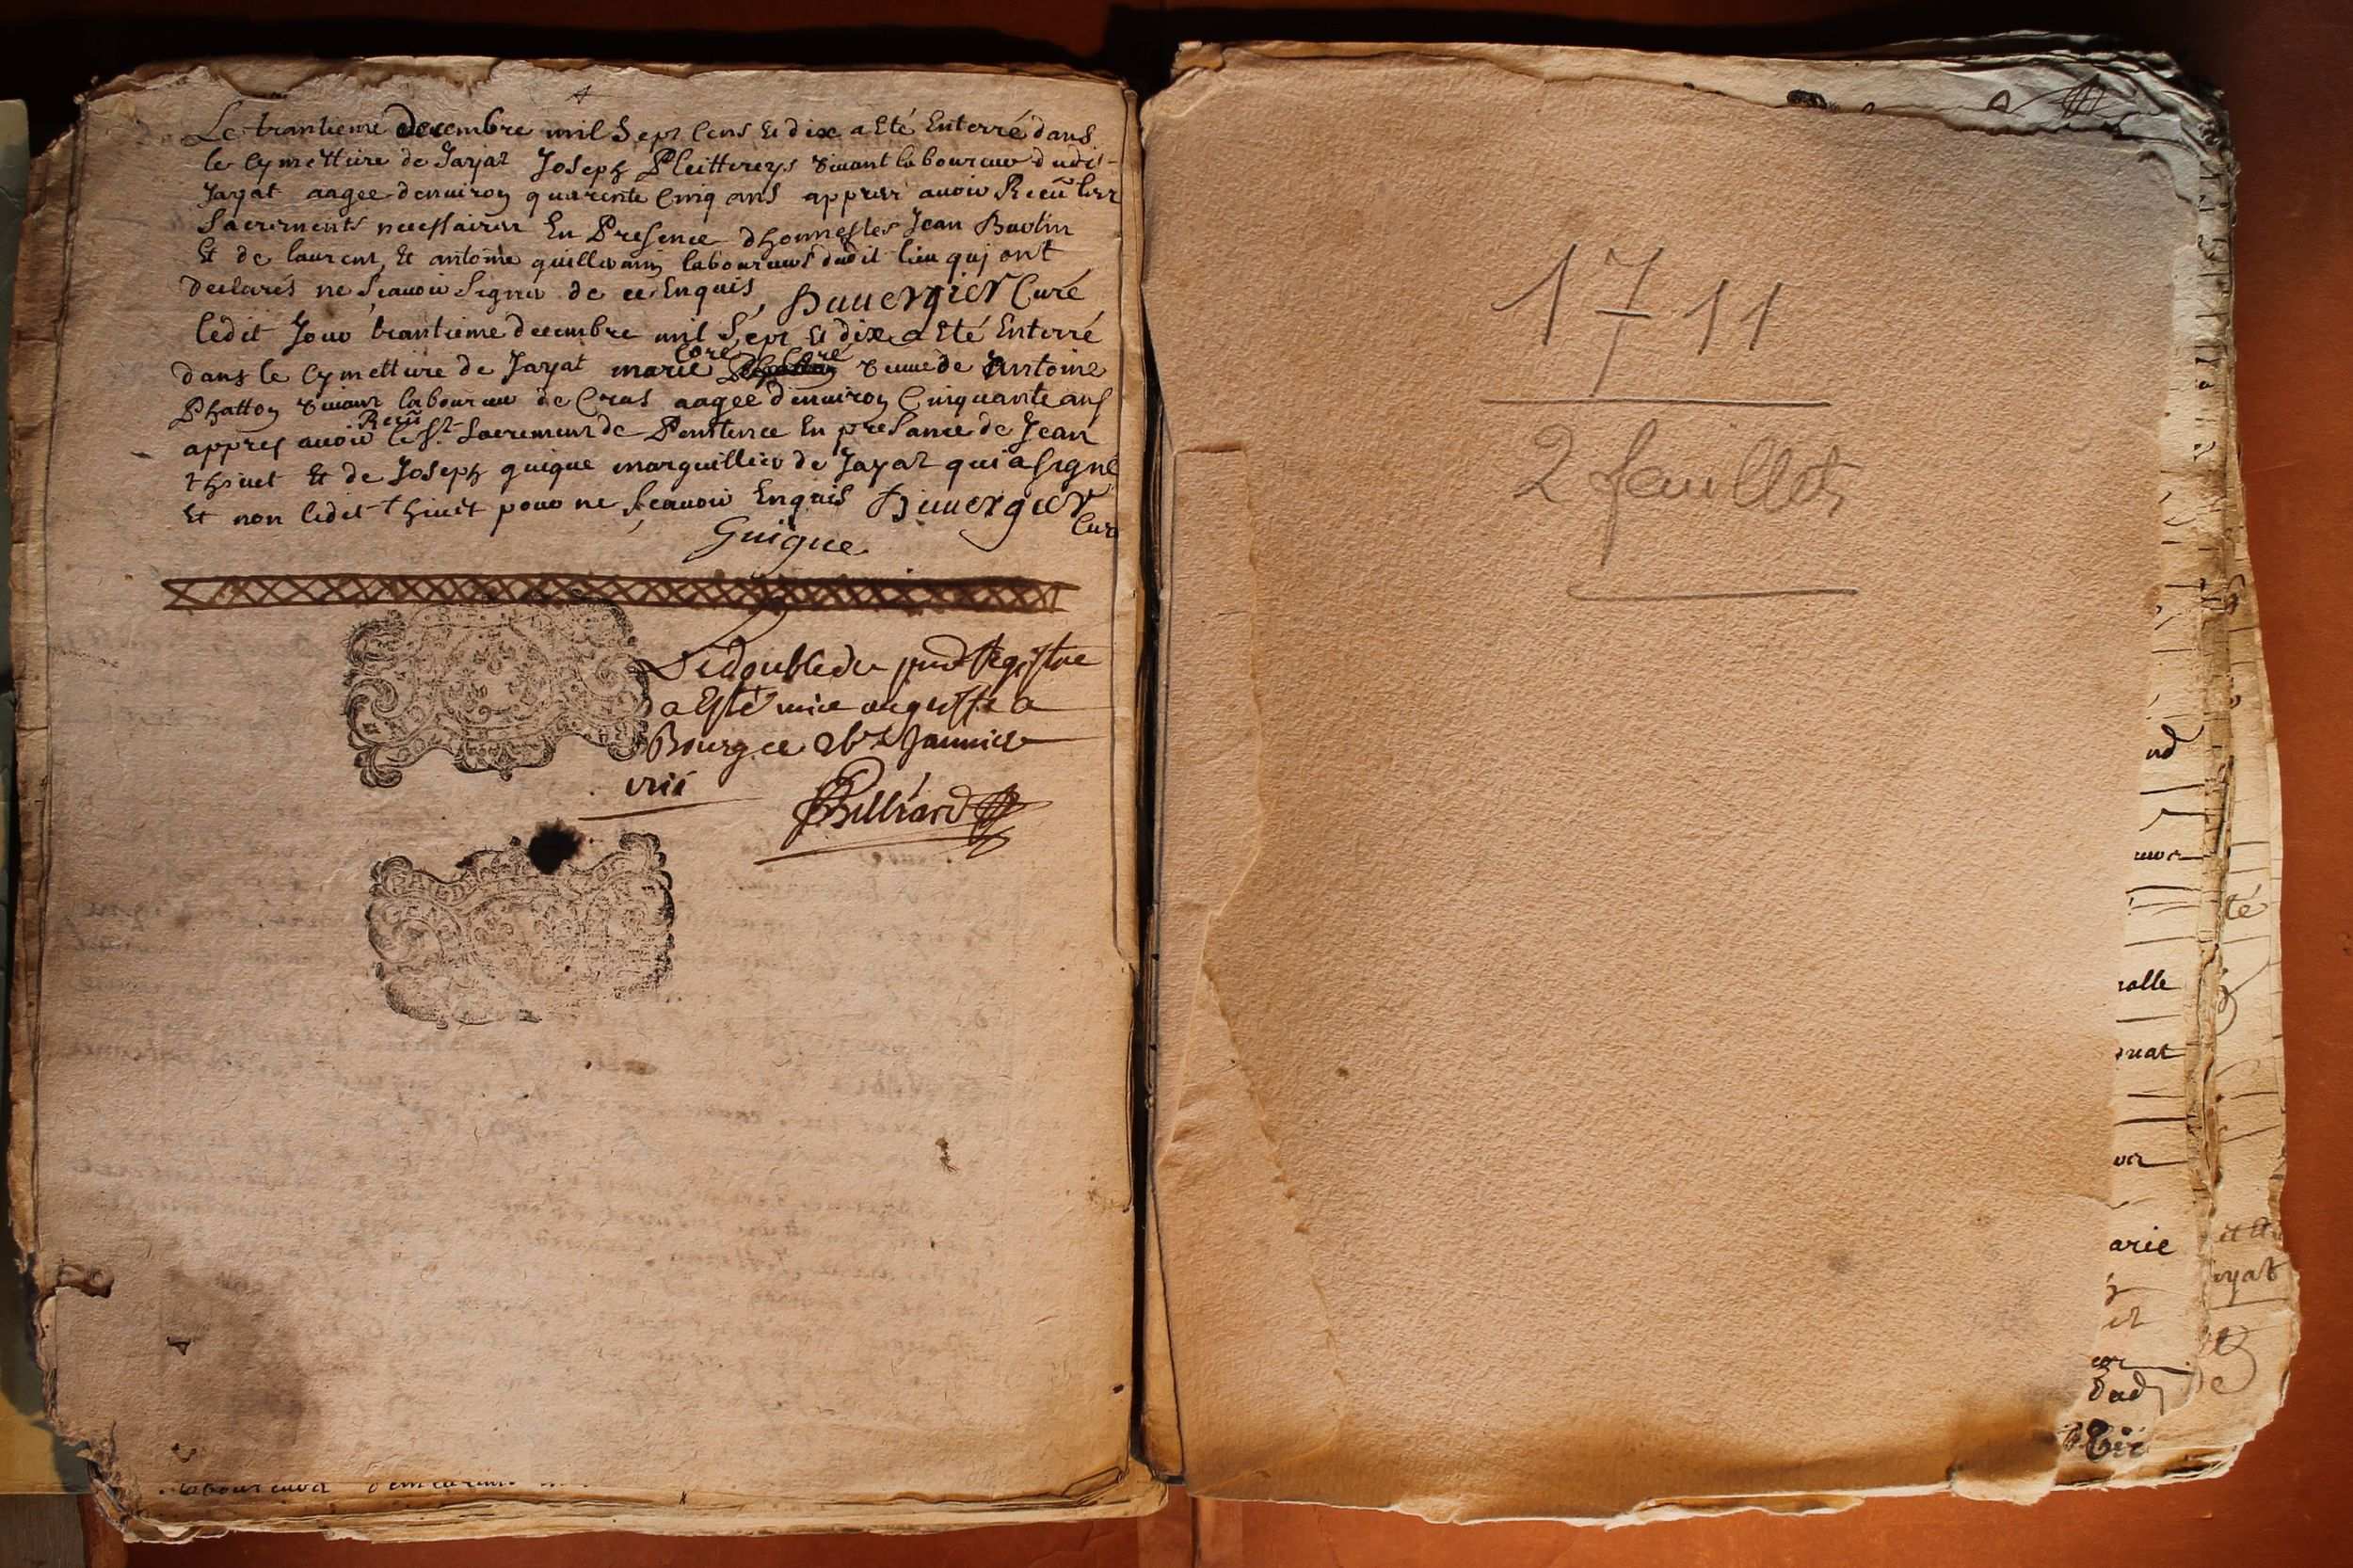 Le trantieme decembre mil Sept Cens Et dix a Eté Enterré dans
le Cymettiere de Jayat Joseph vivant laboureur dudit
Jayat aagee denviron quarente Cinq ans appres avoir Receü les
Sacrements necessaires En Presence dhonnestes Jean
Et de laurent, Et antoine guillermin laboureurs dudit lieu qui ont
declarés ne Scavoir Signer de ce Enquis, Duvergier Curé
ledit Jour trantieme decembre mil Sept Et dix a Eté Enterré
dans le Cymettiere de Jayat marie Coré veuve de Antoine
Phatton vivant laboureur de Cras aagee denviron Cinquante ans
appres avoir Receü le St Sacrement de Penitence En presance de Jean
thivet Et de Joseph guigue marguillier de Jayat qui a signé
Et non ledit thivet pour ne scavoir Enquis Duvergier
Curé
Guigue
Le double du pnt Registre
a Esté mis au greffe a
Bourg ce Janvier
Billiard
1711
2 feuillets
nd
té
nat
arie
et
ayat
de
dud